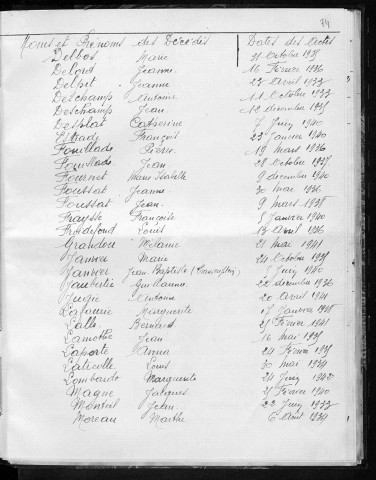 74
Noms et Prénoms des Décédés Dates des Actes
Delbos Marie 31 Octobre
Delord Jeanne 16 Février 1936
Delpit Jeanne 27 Avril 1933
Deschamp Antoine 11 Octobre 1933
Deschamps Jean 12 décembre
Desplat Catherine 7 Juin 1940
Estrade François 23 Janvier 1940
Fouillade Pierre 19 mars 1936
Fouillade Jean 28 Octobre
Fournet Marie Isabelle 9 décembre 1940
Foussat Jeanne 30 mai 1936
Foussat Jean 9 mars
Fraysse Françoise 5 Janvier 1940
Froidefond Louis 13 Avril 1936
Grandou Mélanie 21 mai 1941
Janvier Marie 24 Octobre
Janvier Jean Baptiste 5 Juin 1940
Jaubertie Guillaume 22 décembre 1936
Jugie Antoine 20 Avril 1941
Marguerite 17 Janvier
Lalle Bernard 21 Février 1941
Lamothe Jean 16 mai
Laporte Anna 24 Février
Louis 30 mai 1934
Lombardo Marguerite 24 Juin 1942
Magne Jacques 21 Février 1940
Monteil Jean 22 Juin 1933
Moreau Marthe 6 Août 1934